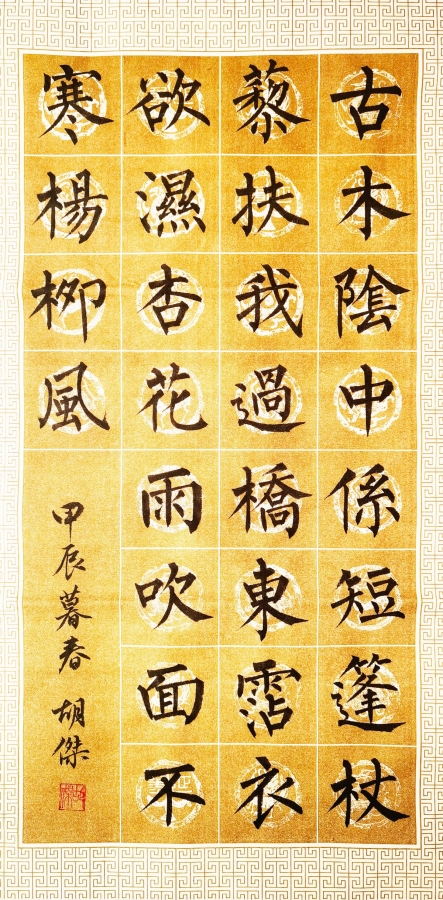 古木陰中係短篷杖
藜扶我過橋東霑衣
欲濕杏花雨吹面不
寒楊柳風
甲辰暮春 胡傑